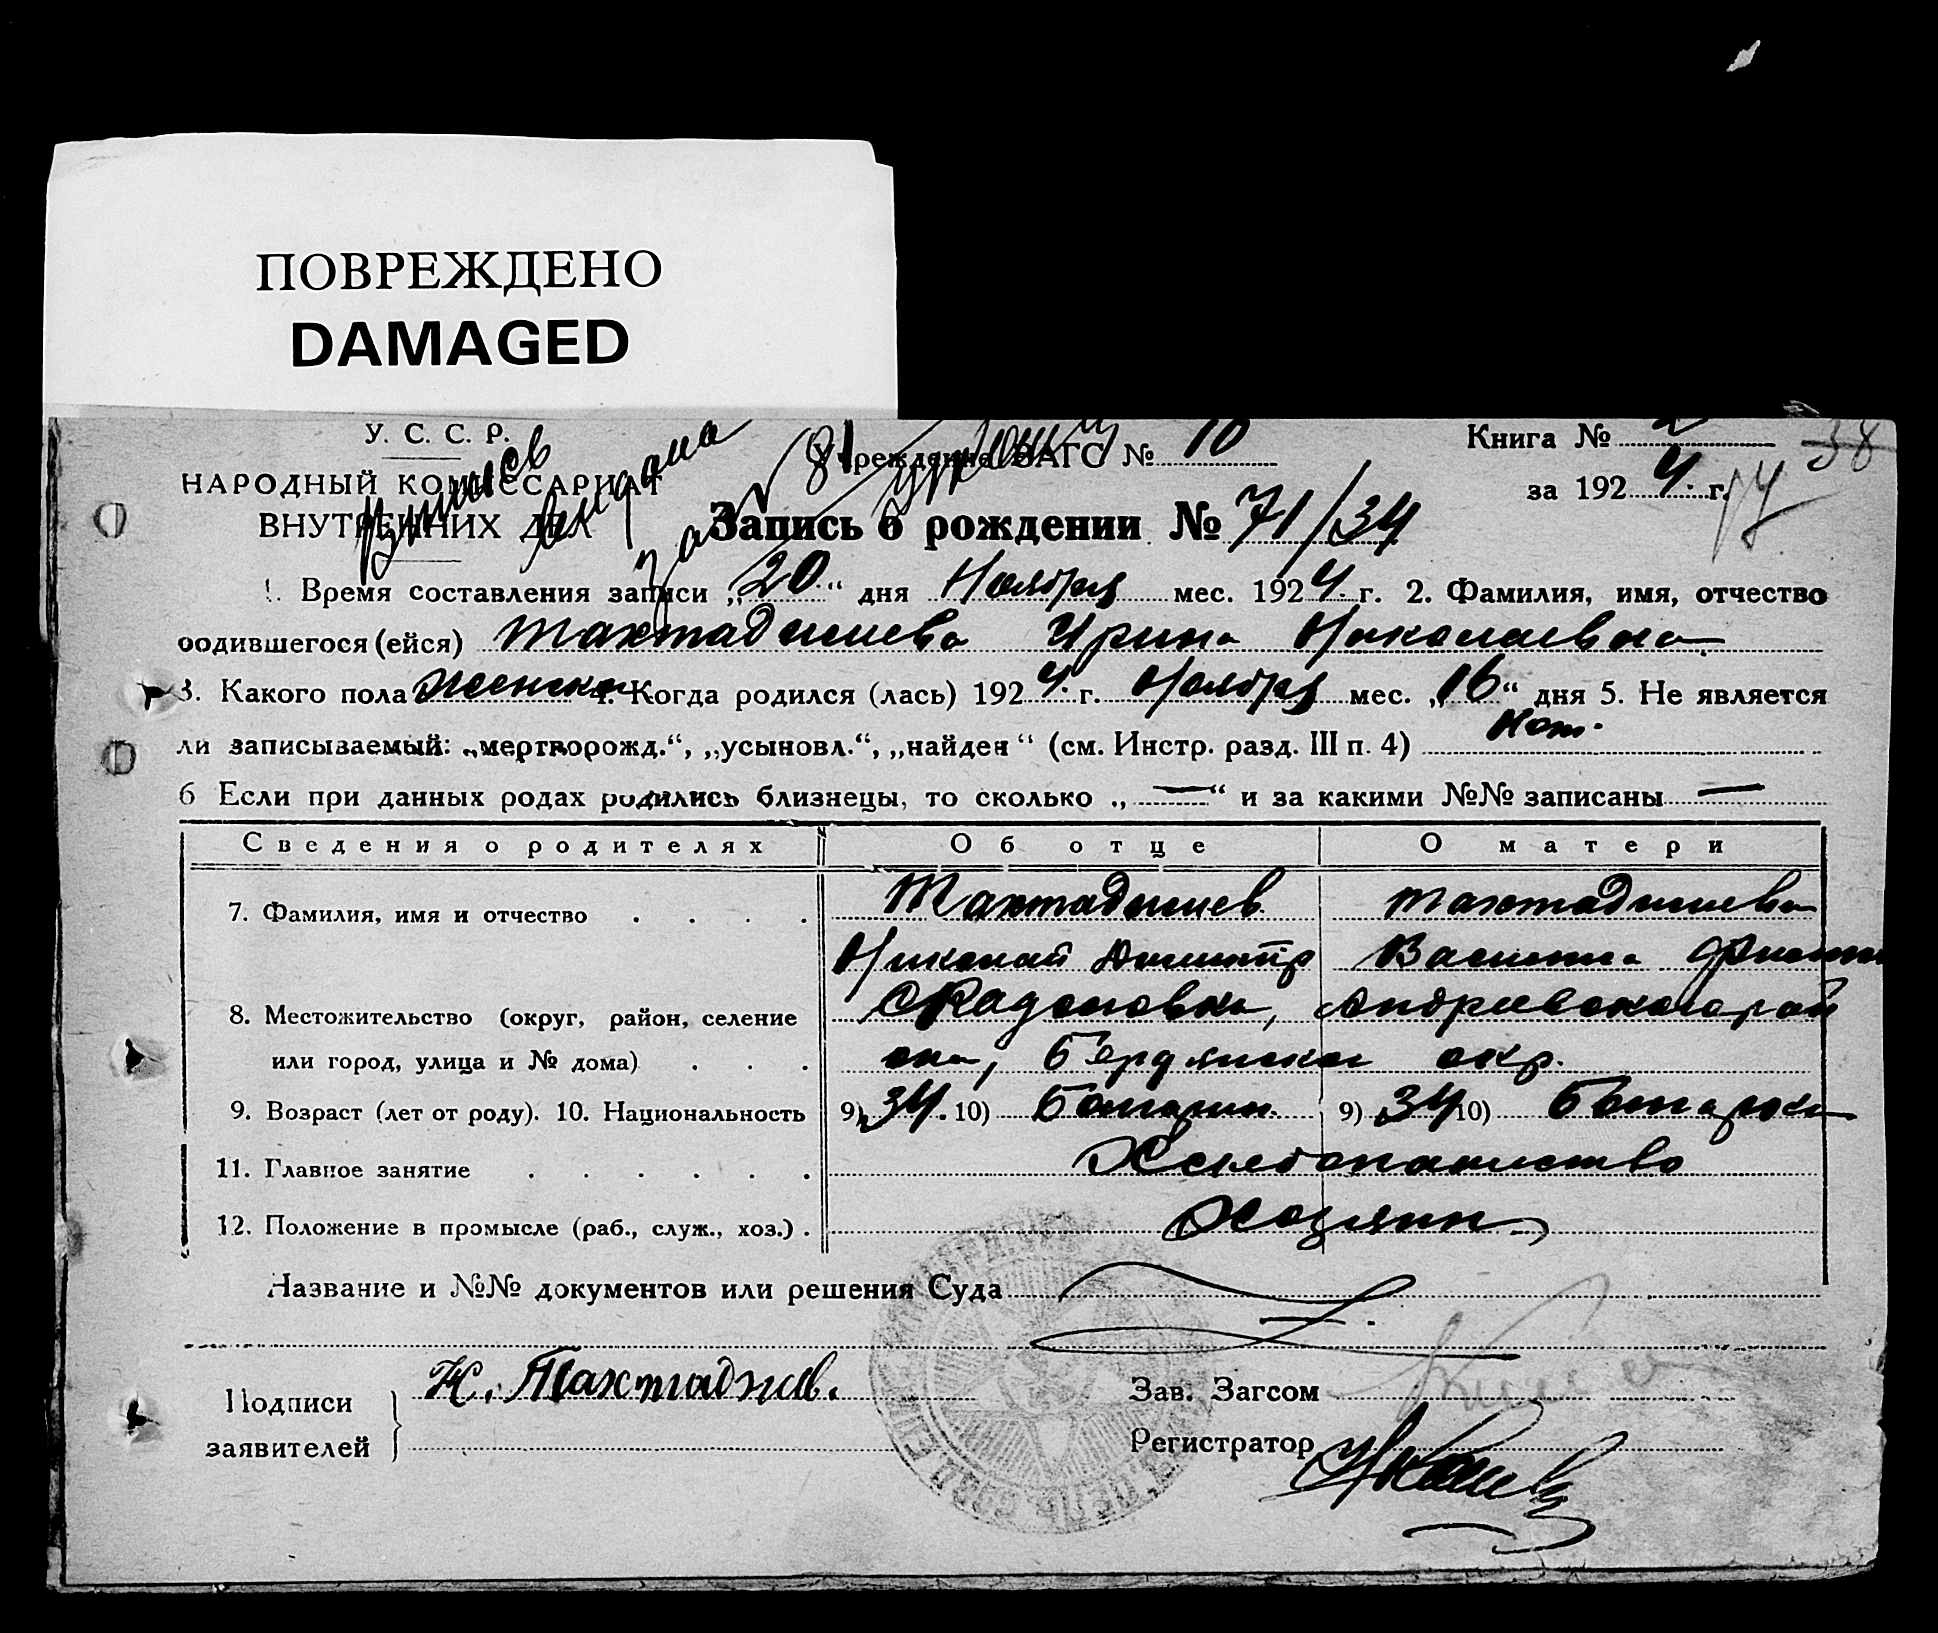 ПОВРЕЖДЕНО
DAMAGED
У. С. С. Р.
НАРОДНЫЙ КОМИССАРИАТ
ВНУТРЕННИХ ДЕЛ
Учреждение ЗАГС № 10
Книга № 2
38
за 1924 г.
Запись о рождении № 71/34
1. Время составления записи „20“ дня Ноября мес. 1924 г. 2. Фамилия, имя, отчество
родившегося (ейся) Тахтаджиева Ирина Николаевна
3. Какого пола женска 4. Когда родился (лась) 1924 г. Ноября мес. „16“ дня 5. Не является
ли записываемый: „мертворожд.“, „усыновл.“, „найден“ (см. Инстр. разд. III п. 4) Нет.
6 Если при данных родах родились близнецы, то сколько „—“ и за какими №№ записаны —
Сведения о родителях Об отце О матери
7. Фамилия, имя и отчество . . . . Тахтаджиев Тахтаджиева
Николай Димитр Василиса
8. Местожительство (округ, район, селение Андреевского рай
или город, улица и № дома) . . . она, Бердянска окр.
9. Возраст (лет от роду). 10. Национальность 9) 34. 10) Болгарин. 9) 34 10) Болгарка
11. Главное занятие . . . . . . Хлебопашество
12. Положение в промысле (раб., служ., хоз.) . Хозяин
Название и №№ документов или решения Суда
Подписи
заявителей
Н. Тахтаджив.
Зав. Загсом
Регистратор